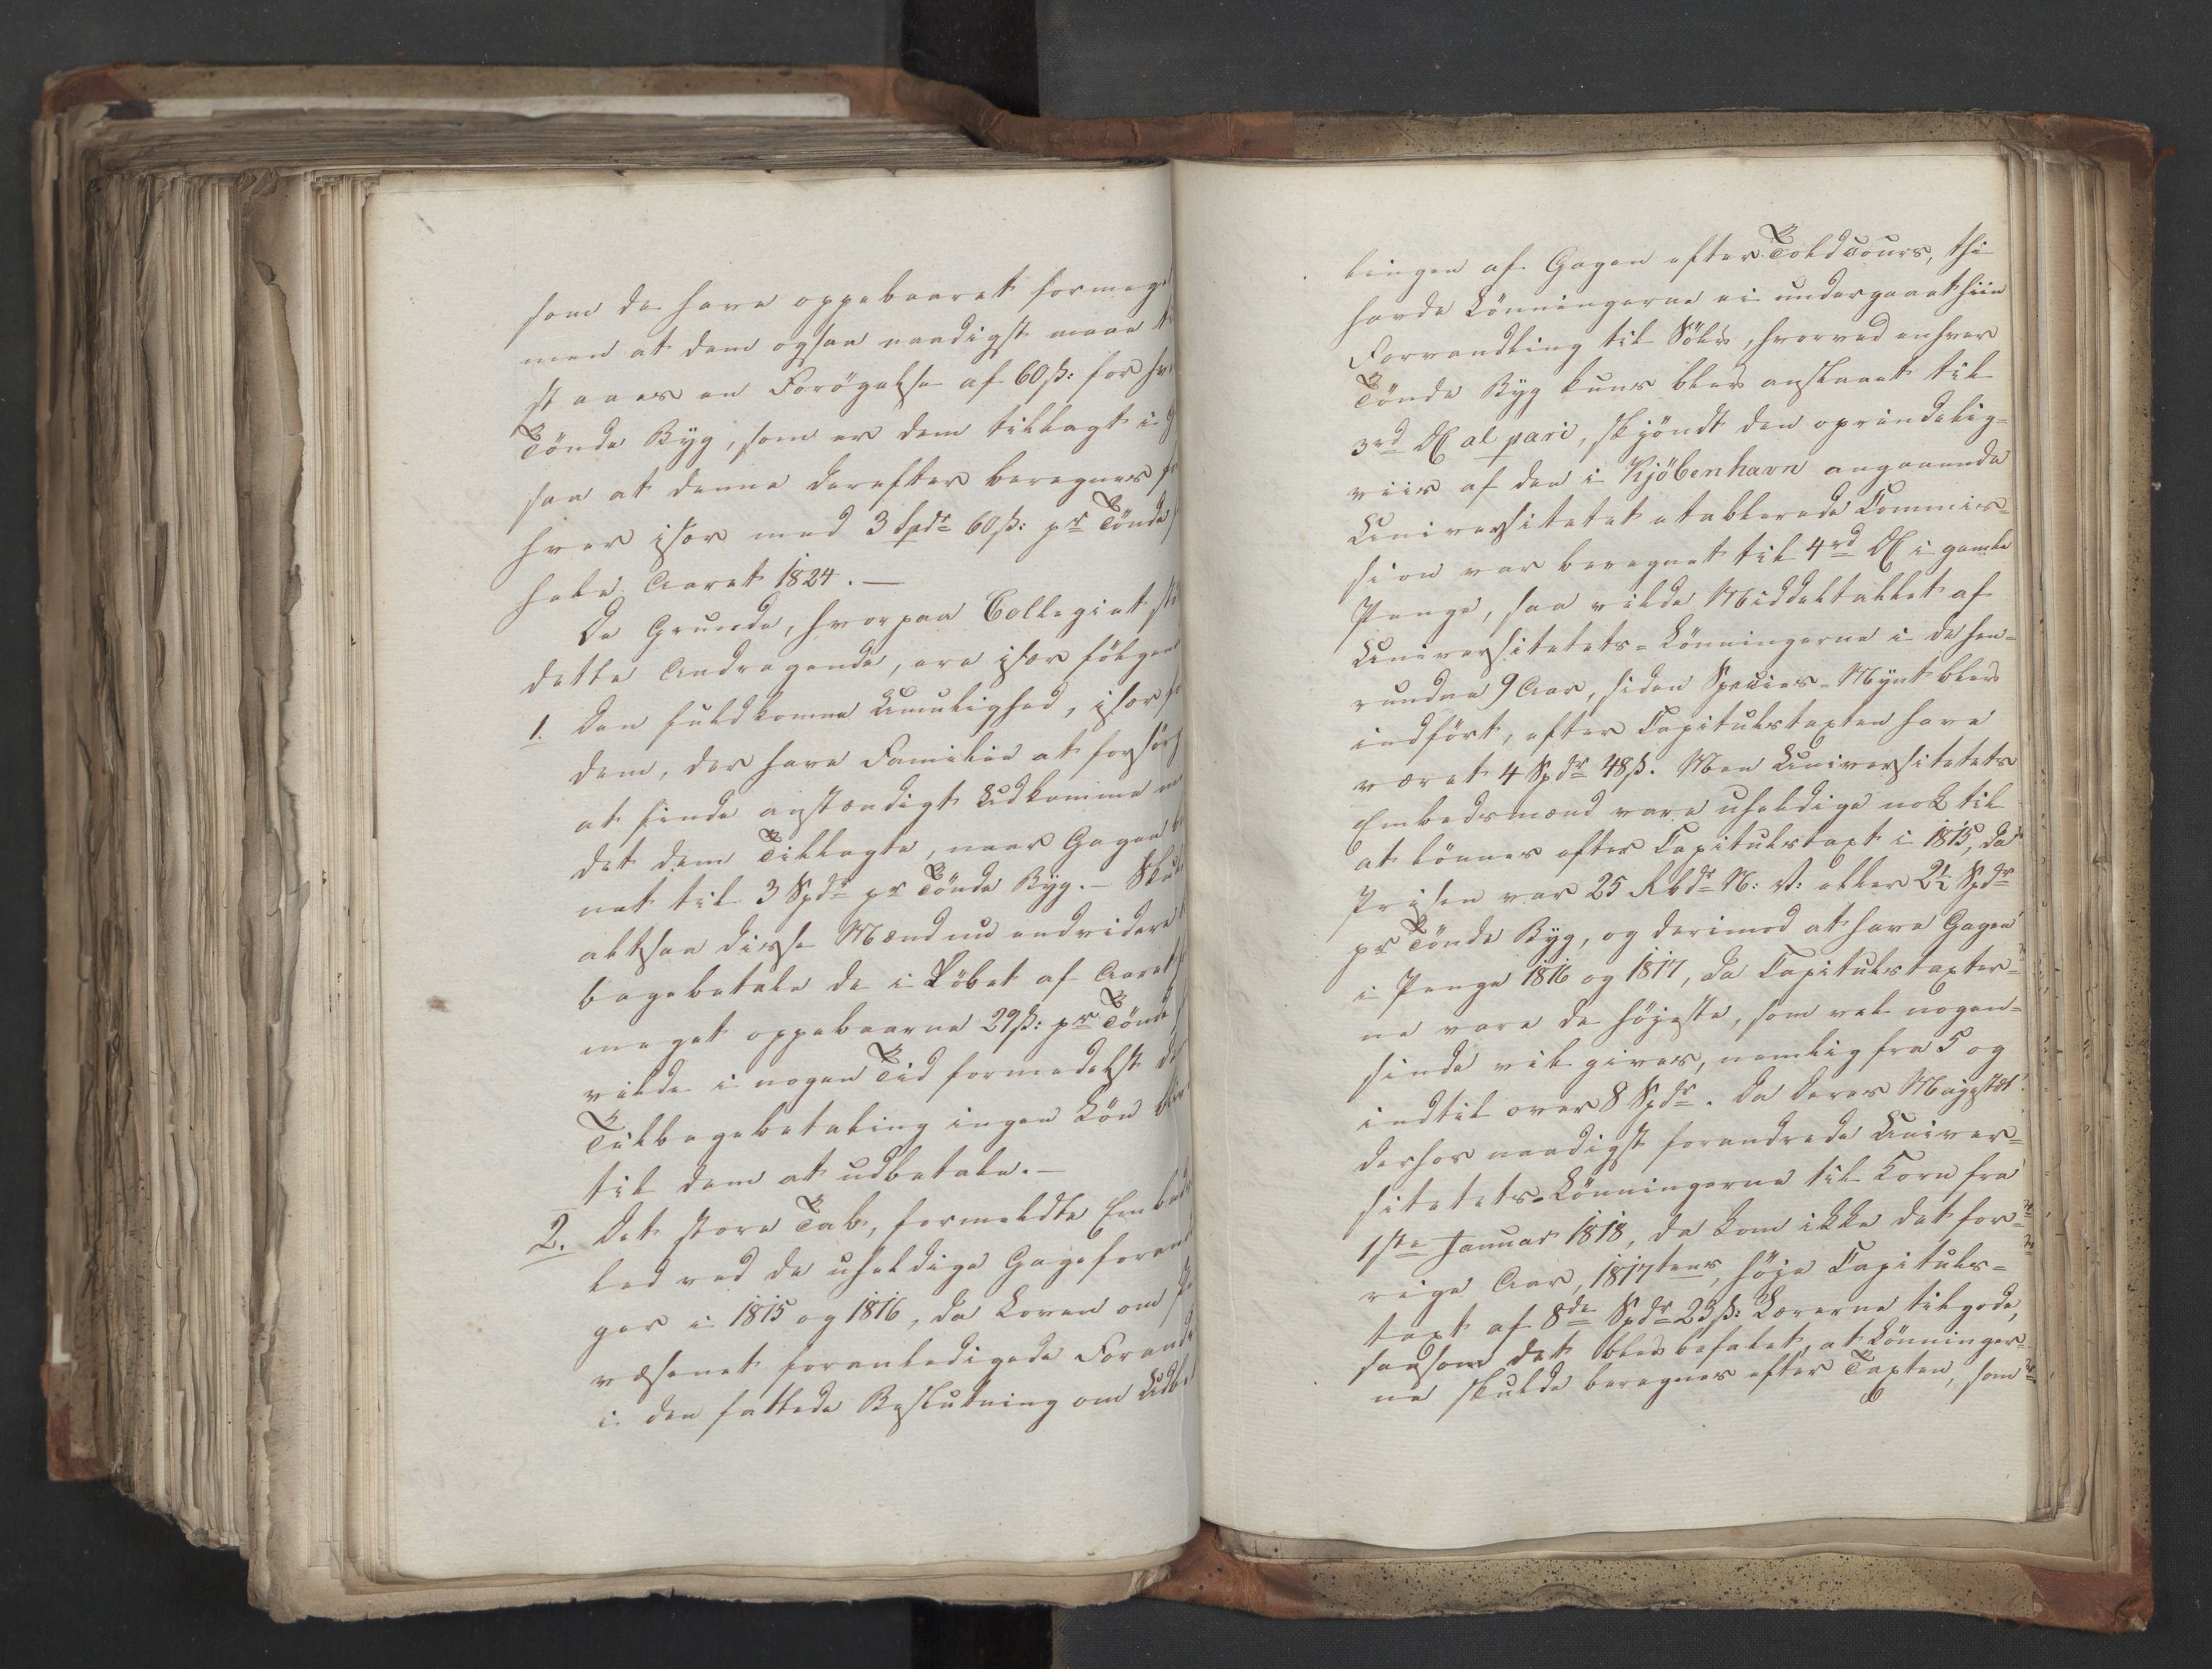 som de have oppebaaret formeget
men at dem ogsaa naadigst maae
staaes en Forøgelse af 60 ß: for hv
Tönde Byg, som er dem tillagt i
saa at denne derefter beregnes
hver især med 3 Spdr 60 ß: pr Tönde
hele Aaret 1824. —
De Grunde, hvorpaa Collegiet
dette Andragende, ere især fölgen
1. Den fuldkomne Umulighed, især
dem, der have Familie at forsörg
at finde anstændigt Udkomme
det dem Tillagte, naar Gagen
net til 3 Spdr pr Tönde Byg. — Skul
altsaa disse Mænd nu endvidere
bagebetale de i Löbet af Aaret
meget oppebaarne 29 ß: pr Tönde
vilde i nogen Tid formedelst
Tilbagebetaling ingen Lön bliv
til dem at udbetale. —
2. Det store Tab, formeldte Embeds
led ved de uheldige Gageforand
ger i 1815 og 1816, da Loven om
væsenet foranledigede Forand
i den fattede Beslutning om Udbet
lingen af Gagen efter Toldcours, thi
havde Lönningerne ei undergaaet hiin
Forvandling til Sölv, hvorved enhver
Tönde Byg kuns blev anslaaet til
3rd al pari, skjöndt den oprindelig-
viis af den i Kjöbenhavn angaaende
Universitetet etablerede Commis-
sion var beregnet til 4rd i gamle
Penge, saa vilde Middeltallet af
Universitetets-Lönningerne i de hen-
rundne 9 Aar, siden Species-Mynt blev
indfört, efter Capitulstaxten have
været 4 Spdr 48 ß. Men Universitetets
Embedsmænd vare uheldige nok til
at lönnes efter Capitulstaxt i 1815, da
Prisen var 25 Rbdr N: V: eller 2½ Spdr
pr Tönde Byg, og derimod at have Gagen
i Penge 1816 og 1817, da Capitulstaxter-
ne vare de höjeste, som vel nogen-
sinde vil gives, nemlig fra 5 og
indtil over 8 Spdr. Da Deres Majestæt
derhos naadigst forandrede Univer-
sitetets-Lönningerne til Korn fra
1ste Januar 1818, da kom ikke det for-
rige Aar, 1817tens, höje Capituls-
taxt af 8de Spdr 23 ß: Lærerne tilgode,
saasom det blev befalet, at Lönninger-
ne skulde beregnes efter Taxten, som